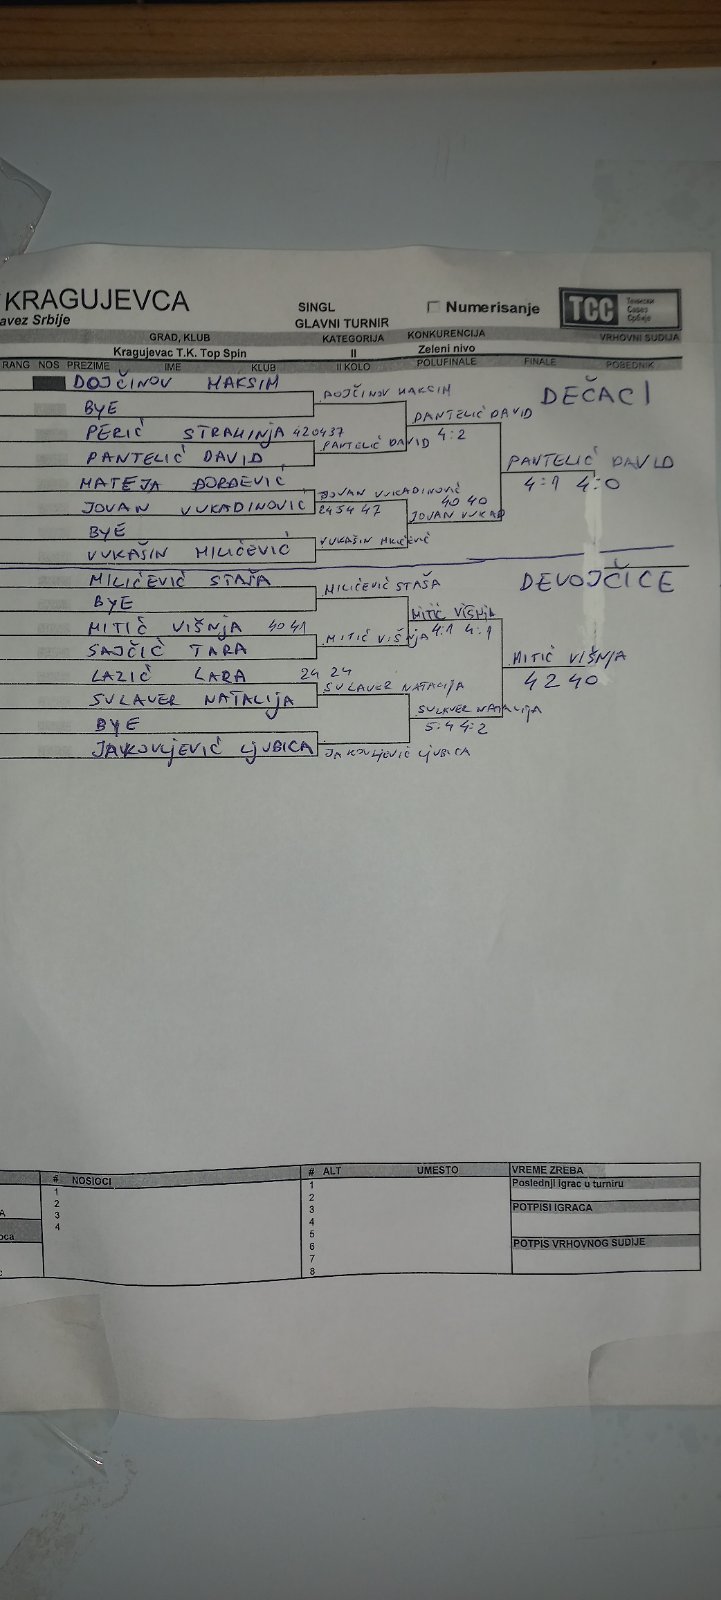 KRAGUJEVCA
avez Srbije
SINGL
GLAVNI TURNIR
Numerisanje
TCC
Тениски
Савез
Србије
GRAD, KLUB KATEGORIJA KONKURENCIJA VRHOVNI SUDIJA
Kragujevac T.K. Top Spin II Zeleni nivo
RANG NOS PREZIME IME KLUB II KOLO POLUFINALE FINALE POBEDNIK
DOJČINOV MAKSIM
DOJČINOV MAKSIM
DEČACI
BYE
PANTELIĆ DAVID
PERIĆ STRAHINJA 420437
4:2
PANTELIĆ DAVID
PANTELIĆ DAVID
PANTELIĆ DAVID
4:1 4:0
MATEJA ĐORĐEVIĆ
JOVAN VUKADINOVIĆ
JOVAN VUKADINOVIĆ
2454 47
40 40
JOVAN VUKAD
BYE
VUKAŠIN MILIĆEVIĆ
VUKAŠIN MILIĆEVIĆ
MILIĆEVIĆ STAŠA
MILIĆEVIĆ STAŠA
DEVOJČICE
BYE
MITIĆ VIŠNJA
MITIĆ VIŠNJA 40 41
4:1 4:1
MITIĆ VIŠNJA
SAJČIĆ TARA
MITIĆ VIŠNJA
42 40
LAZIĆ LARA 24 24
SULAVER NATALIJA
SULAVER NATALIJA
SULAVER NATALIJA
5:4 4:2
BYE
JAKOVLJEVIĆ LJUBICA
JAKOVLJEVIĆ LJUBICA
# NOSIOCI
1
2
3
4
# ALT UMESTO
1
2
3
4
5
6
7
8
VREME ZREBA
Poslednji igrac u turniru
POTPISI IGRACA
POTPIS VRHOVNOG SUDIJE